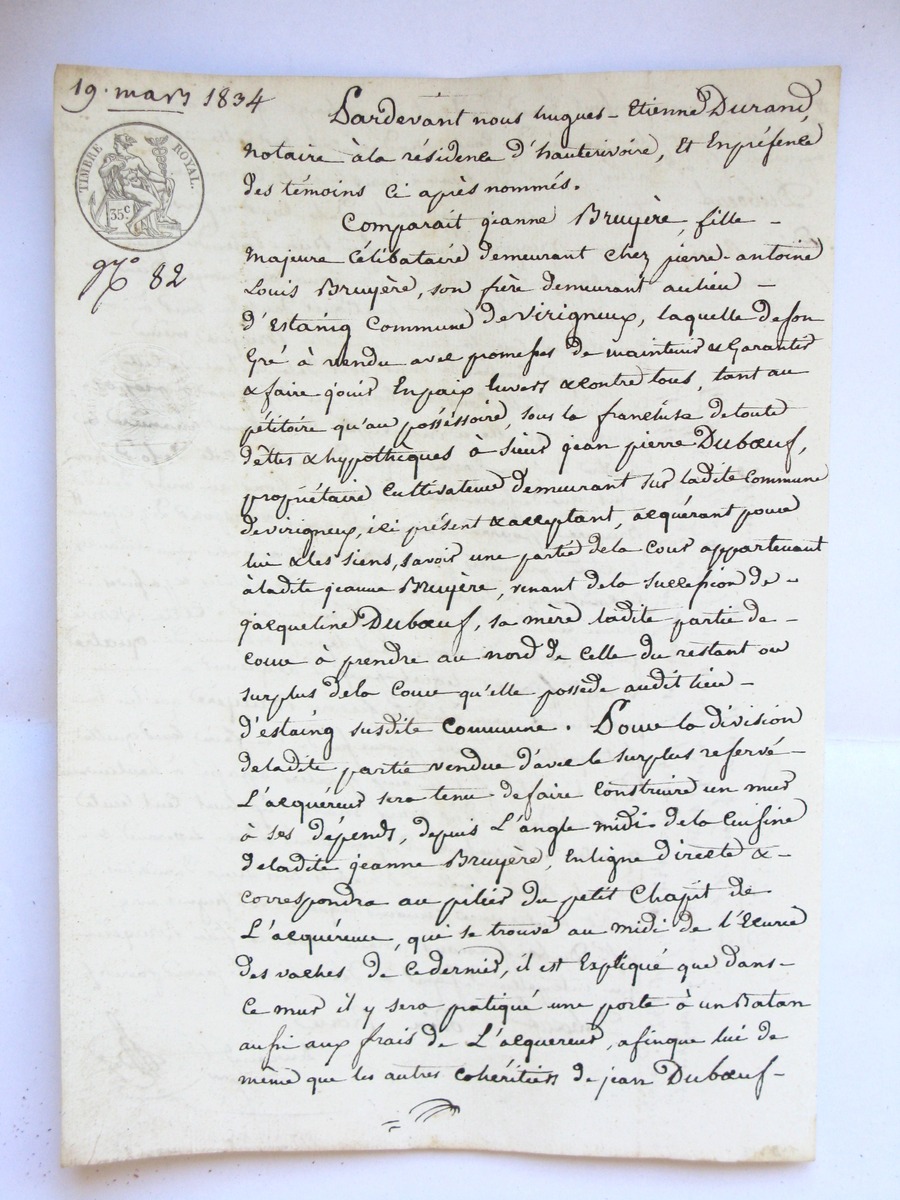 19. mars 1834
TIMBRE ROYAL.
35c
No 82
Pardevant nous hugues-Etienne Durand,
notaire à la résidence d'hauterivoire, Et En présence
des témoins ci après nommés.
Comparait jeanne Bruyère, fille -
Majeure Célibataire demeurant chez pierre-antoine
Louis Bruyère, son frère demeurant au lieu -
d'Estaing Commune de virigneux, laquelle de son
Gré à vendu avec promesses de maintenir & Garantir
& faire jouir En paix Envers & contre tous, tant au
pétitoire qu'au posséssoire, sous la franchise de toute
dettes & hypothèques à Sieur jean pierre Dubœuf,
propriétaire Cultivateur demeurant sur ladite Commune
de virigneux, ici présent & acceptant, acquérant pour
lui & les siens, savoir une partie de la Cour appartenant
à ladite jeanne Bruyère, venant de la succession de -
jacqueline Dubœuf, sa mère ladite partie de -
cour à prendre au nord de celle du restant ou
surplus de la Cour qu'elle possède audit lieu -
d'estaing susdite commune. Pour la division
de ladite partie vendue d'avec le surplus réservé -
L'acquéreur sera tenu de faire Construire un mur
à ses dépends, depuis L'angle midi de la Cuisine
de ladite jeanne Bruyère, En ligne directe & -
correspondra au pilier du petit Chapit de
L'acquéreur, qui se trouve au midi de l'Ecurie
des vaches de ce dernier, il est Expliqué que dans -
ce mur il y sera pratiqué une porte à un Batan
aussi aux frais de L'acquereur, afin que lui de
même que les autres cohéritiers de jean Dubœuf -